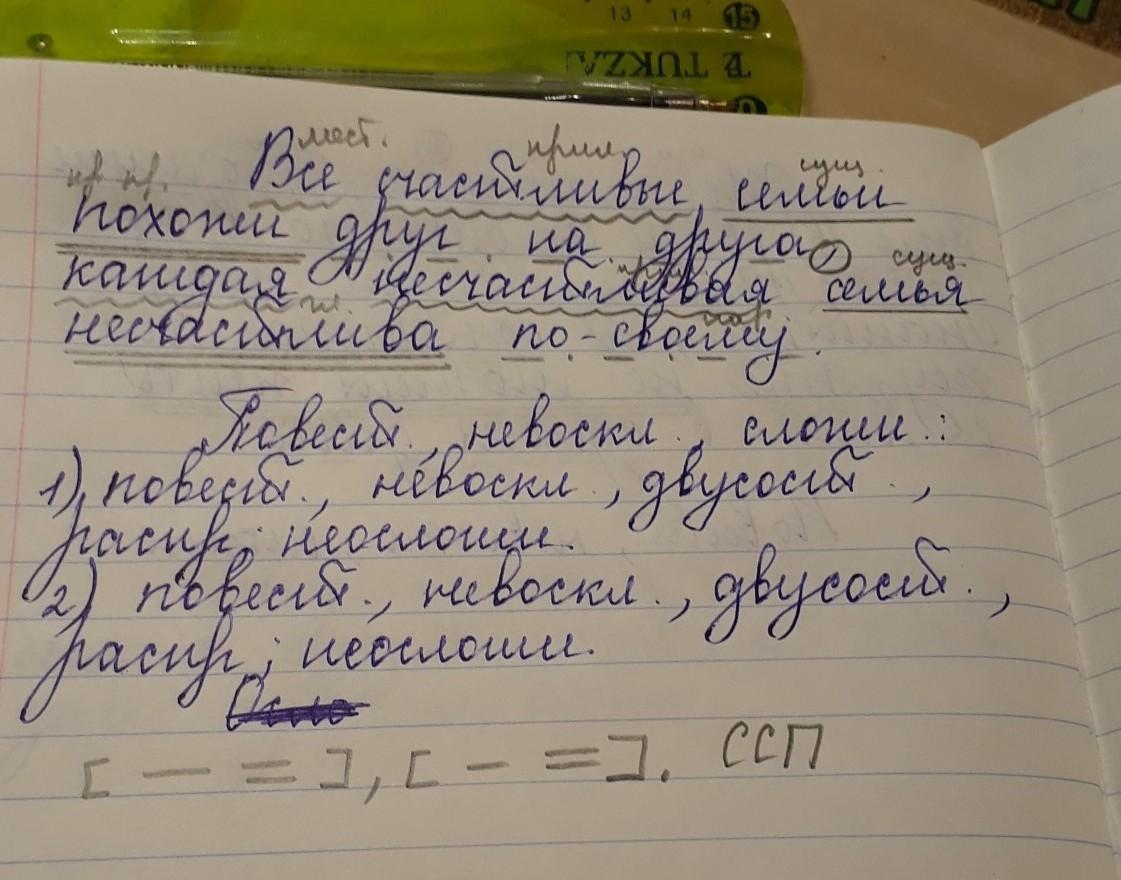 13 14 15
TUKZA
мест. прил. сущ.
пр. пр. Все счастливые семьи
похожи друг на друга, сущ.
каждая несчастливая семья
гл. нар.
несчастлива по-своему.
Повеств., невоскл., сложн.:
1) повеств., невоскл., двусост.,
распр., неосложн.
2) повеств., невоскл., двусост.,
распр., неосложн.
[ — = ], [ - = ]. ССП